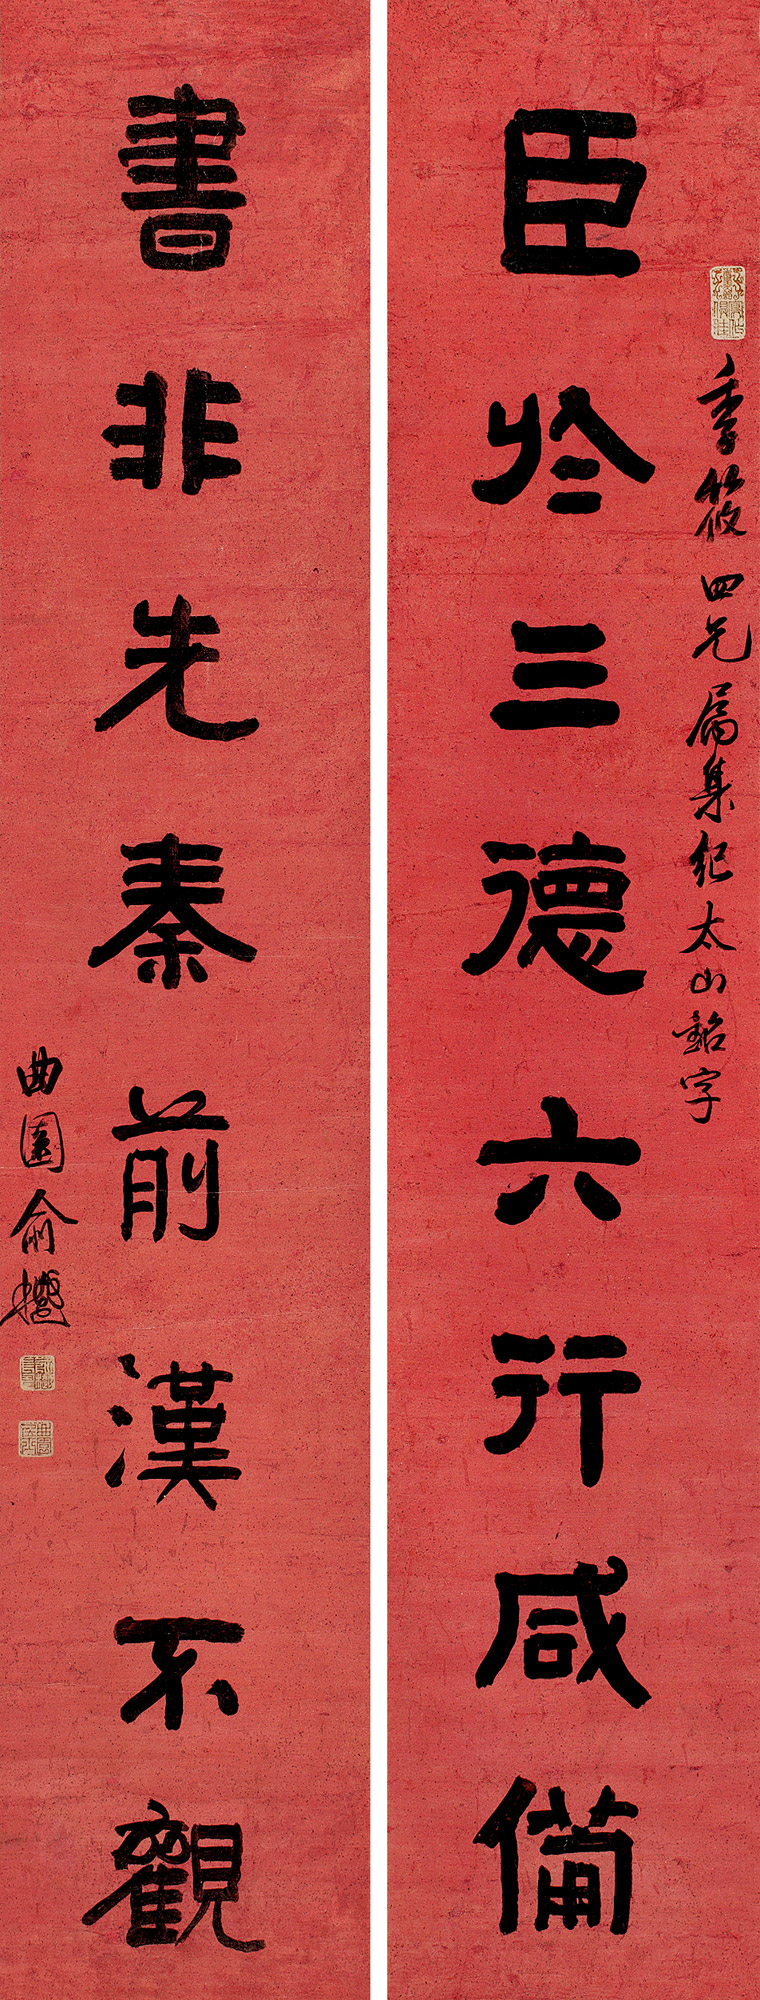 臣於三德六行咸備
季筱四兄屬集紀太山銘字
書非先秦前漢不觀
曲園俞樾